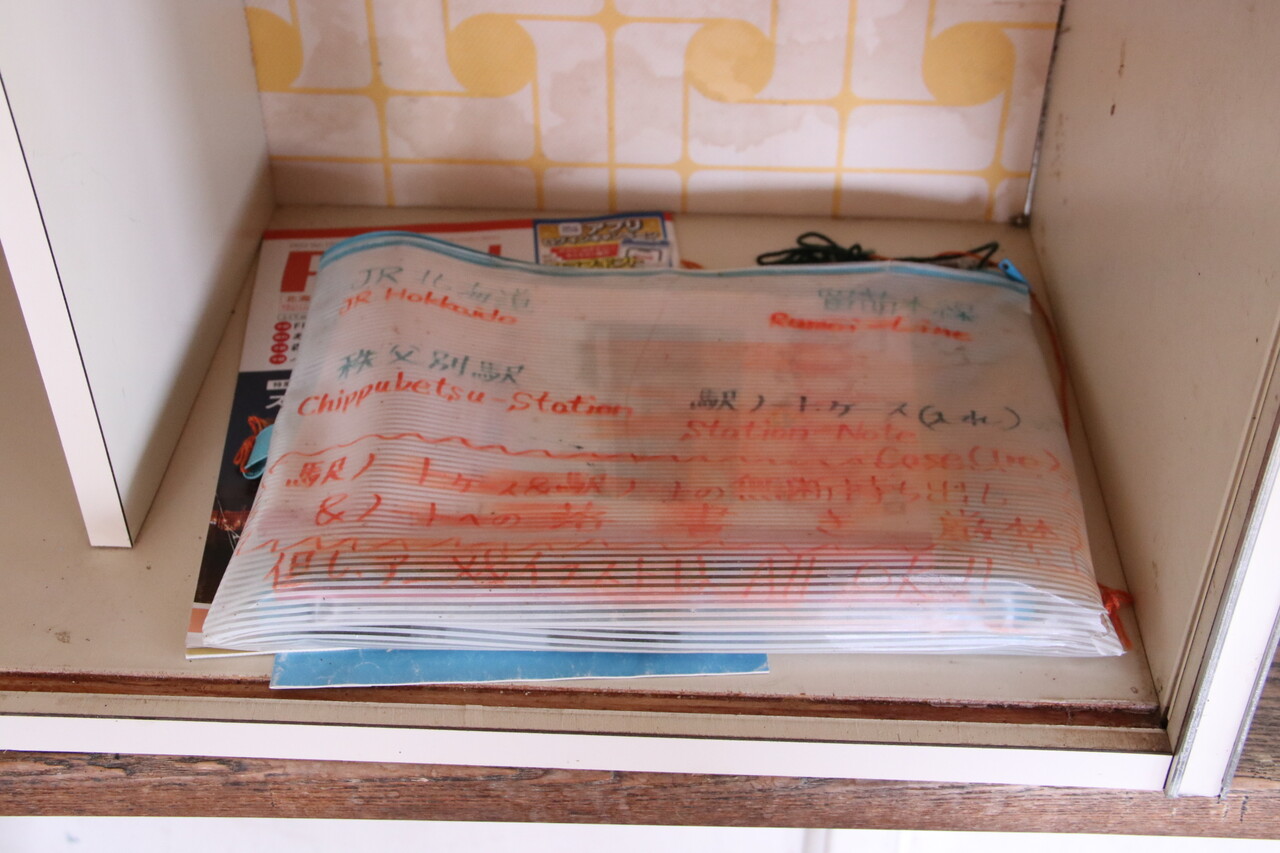 JR 北海道
JR Hokkaido
留萌本線
Rumoi-Line
秩父別駅
Chippubetsu-Station
駅ノートケース(入れ)
Station-Note
Case(Ire)
駅ノートケース&駅ノートの無断持ち出し
&ノートへの落書き厳禁!
但しアニメイラストは All OK!!
アプリ